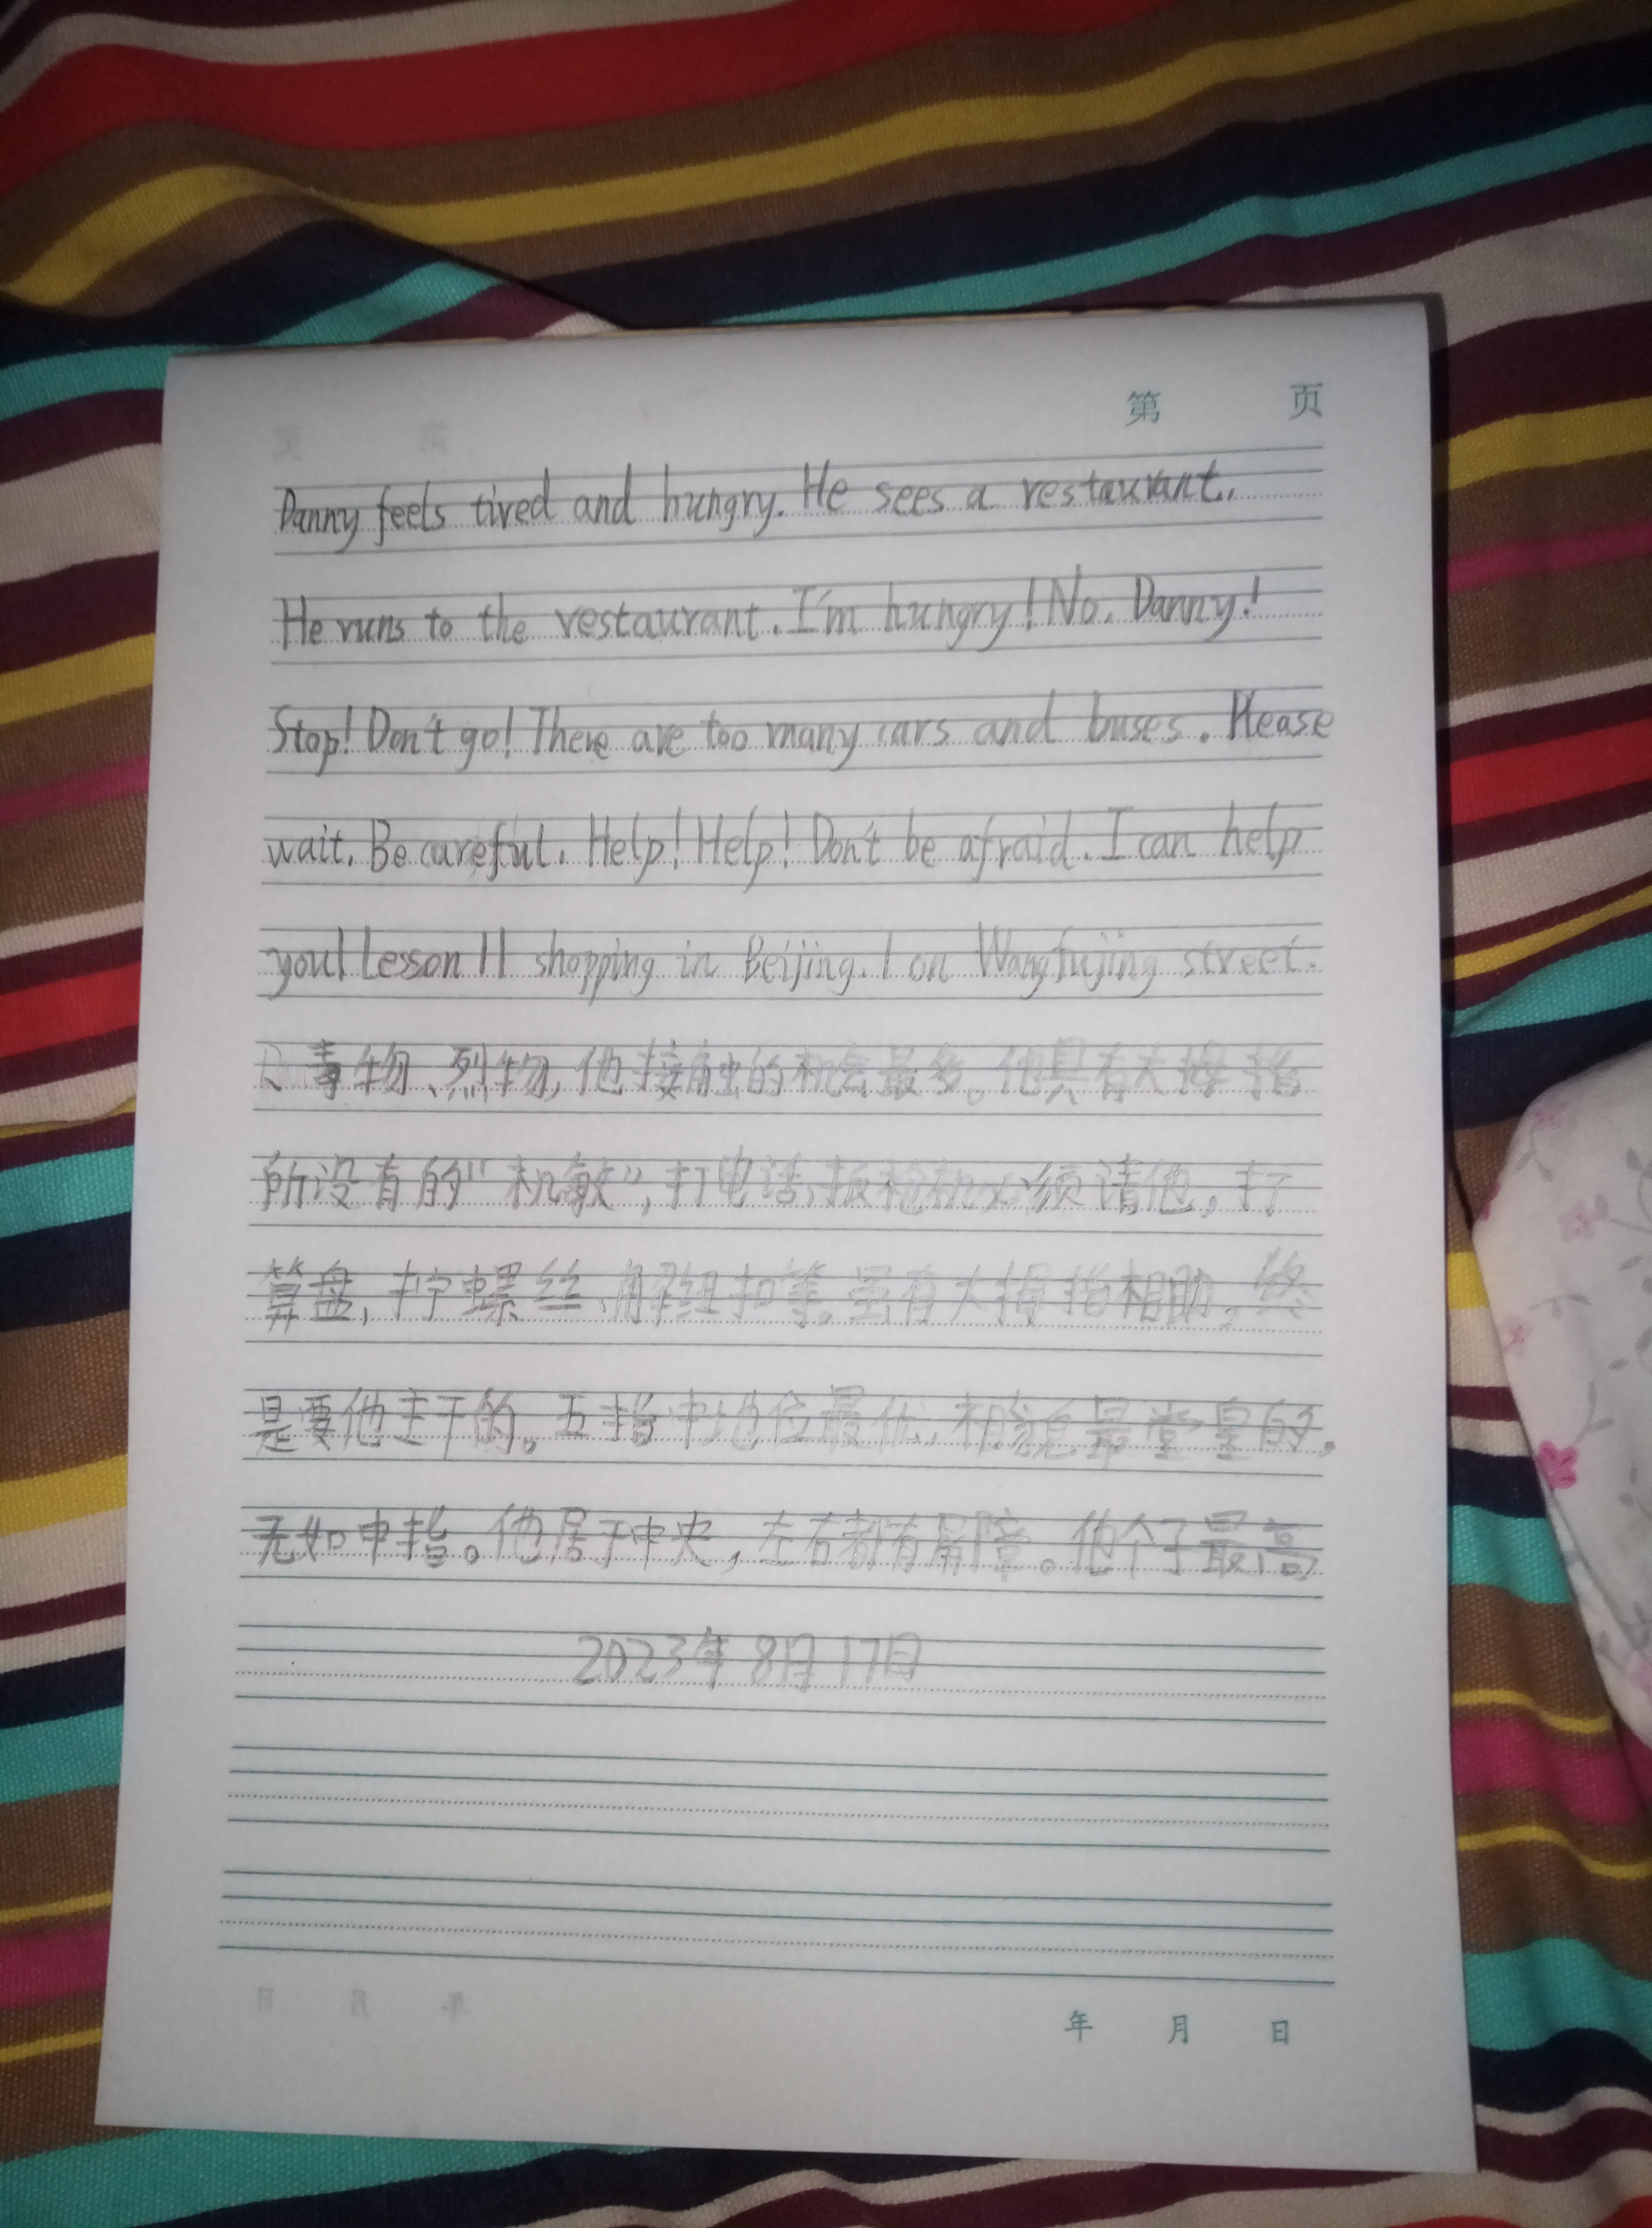 第 页
Danny feels tired and hungry. He sees a restaurant..
He runs to the restaurant. I'm hungry! No. Danny!
Stop! Don't go! There are too many cars and buses. Please
wait. Be careful. Help! Help! Don't be afraid. I can help
you! Lesson 11 shopping in Beijing. 1 on Wangfujing street.
、毒物、烈物,他接触的机会最多。他具有大拇指
所没有的“机敏”,打电话、扳枪机必须请他,打
算盘,拧螺丝、解纽扣等,虽有大拇指相助,终
是要他主干的。五指中地位最优、相貌最堂皇的,
无如中指。他居于中央,左右都有屏障。他个子最高
2023年8月17日
年 月 日